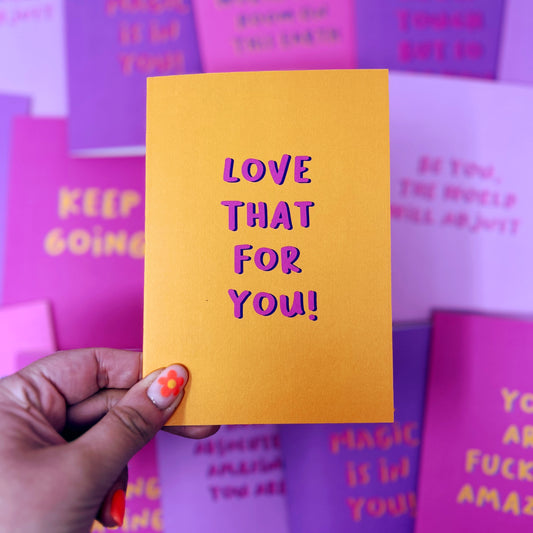 MAGIC
IS IN
YOU!
ROOM ON
THIS EARTH
TOUGH
BUT SO
KEEP
GOING
LOVE
THAT
FOR
YOU!
BE YOU,
THE WORLD
WILL ADJUST
YO
AR
FUCK
AMAZ
ABSOLUTE
AMAZING
YOU ARE
MAGIC
IS IN
YOU!